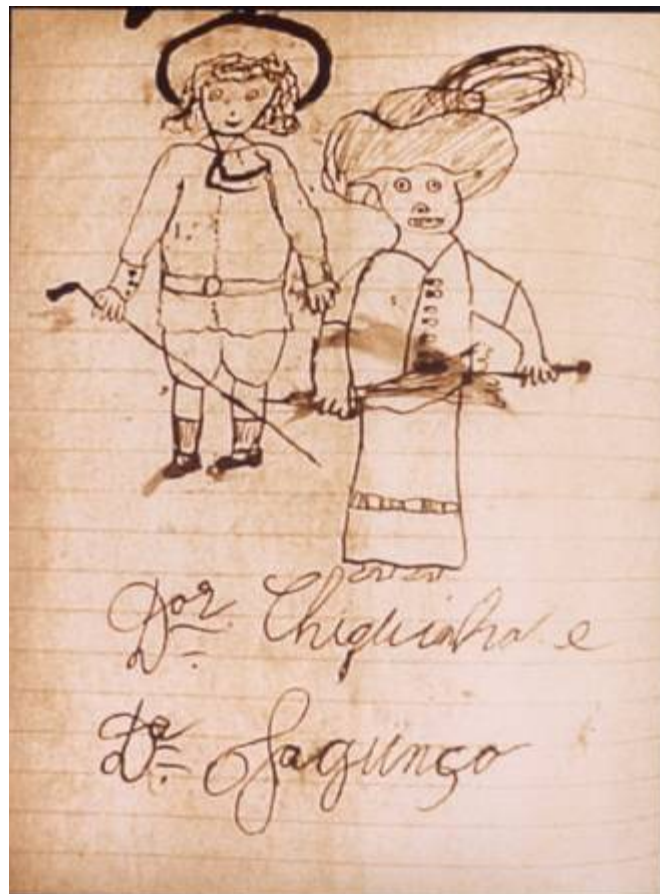 Dor. Chiquinha e
Da. Jagunço